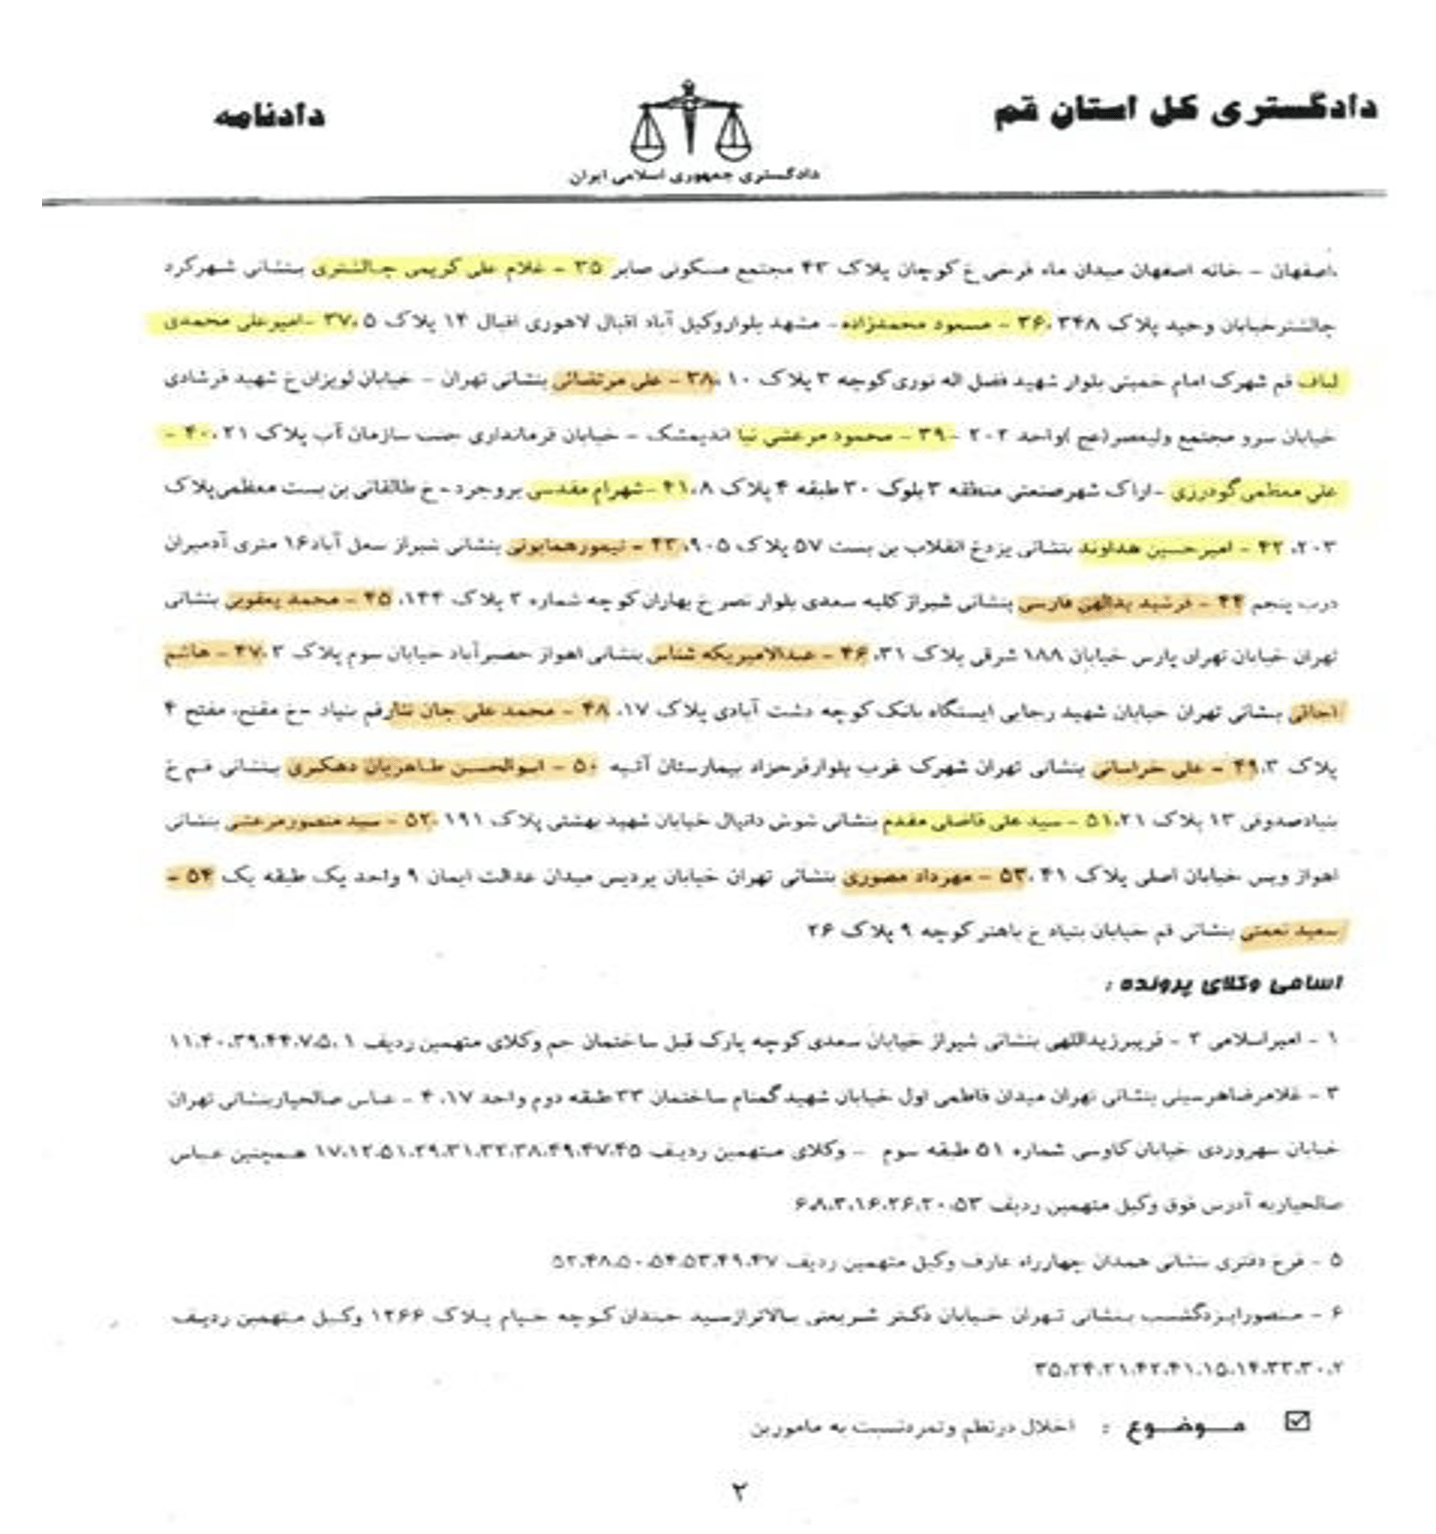 دادگستری کل استان قم
دادنامه
دادگستری جمهوری اسلامی ایران
اصفهان - خانه اصفهان میدان ماه فرخی خ کوچان پلاک ۴۳ مجتمع مسکونی صابر ۳۵ - غلام علی کریمی چالشتری بنشانی شهرکرد
چالشترخیابان وحید پلاک ۳۴۸، ۳۶ - مسعود محمدزاده - مشهد بلواروکیل آباد اقبال لاهوری اقبال ۱۴ پلاک ۵، ۳۷ -امیرعلی محمدی
لباف قم شهرک امام خمینی بلوار شهید فضل اله نوری کوچه ۳ پلاک ۱۰، ۳۸ - علی مرتضائی بنشانی تهران - خیابان لویزان خ شهید فرشادی
خیابان سرو مجتمع ولیعصر(عج )واحد ۲۰۲ -۳۹ - محمود مرعشی نیا اندیمشک - خیابان فرمانداری جنب سازمان آب پلاک ۲۱، ۴۰ -
علی معظمی گودرزی -اراک شهرصنعتی منطقه ۳ بلوک ۳۰ طبقه ۴ پلاک ۸، ۴۱ -شهرام مقدسی بروجرد - خ طالقانی بن بست معظمی پلاک
۲۰۳، ۴۲ - امیرحسین هداوند بنشانی یزدخ انقلاب بن بست ۵۷ پلاک ۹۰۵، ۴۳ - تیمورهمایونی بنشانی شیراز سعل آباد ۱۶ متری آدمیران
درب پنجم ۴۴ - فرشید یدالهی فارسی بنشانی شیراز کلبه سعدی بلوار نصر خ بهاران کوچه شماره ۲ پلاک ۱۳۴، ۴۵ - محمد یعقوبی بنشانی
تهران خیابان تهران پارس خیابان ۱۸۸ شرقی پلاک ۳۱، ۴۶ - عبدالامیریکه شناس بنشانی اهواز حصیرآباد خیابان سوم پلاک ۳، ۴۷ - هاشم
اجاتی بنشانی تهران خیابان شهید رجایی ایستگاه بانک کوچه دشت آبادی پلاک ۱۷، ۴۸ - محمد علی جان نثارقم بنیاد -خ مفتح، مفتح ۴
پلاک ۳، ۴۹ - علی خراسانی بنشانی تهران شهرک غرب بلوارفرحزاد بیمارستان آتیه ۵۰ - ابوالحسن طاهریان دهکردی بنشانی قم خ
بنیادصدوقی ۱۳ پلاک ۲۱، ۵۱ - سید علی فاضلی مقدم بنشانی شوش دانیال خیابان شهید بهشتی پلاک ۱۹۱، ۵۲ - سید منصورمرعشی بنشانی
اهواز ویس خیابان اصلی پلاک ۴۱، ۵۳ - مهرداد مصوری بنشانی تهران خیابان پردیس میدان عدالت ایمان ۹ واحد یک طبقه یک ۵۴ -
سعید نعمتی بنشانی قم خیابان بنیاد خ باهنر کوچه ۹ پلاک ۲۶
اسامی وکلای پرونده :
۱ - امیراسلامی ۲ - فریبرزیداللهی بنشانی شیراز خیابان سعدی کوچه پارک قبل ساختمان جم وکلای متهمین ردیف ۱،۵،۷،۴۴،۳۹،۴۰،۱۱
۳ - غلامرضاهرسینی بنشانی تهران میدان فاطمی اول خیابان شهید گمنام ساختمان ۳۳ طبقه دوم واحد ۱۷، ۴ - عباس صالحیاربنشانی تهران
خیابان سهروردی خیابان کاوسی شماره ۵۱ طبقه سوم - وکلای متهمین ردیف ۴۵،۴۷،۴۹،۳۸،۳۲،۳۱،۲۹،۵۱،۱۲،۱۷ همچنین عباس
صالحیاربه آدرس فوق وکیل متهمین ردیف ۵۳،۲۰،۲۶،۱۶،۳،۸،۶
۵ - فرخ دفتری بنشانی همدان چهارراه عارف وکیل متهمین ردیف ۴۷،۴۹،۵۳،۵۴،۵۰،۴۸،۵۲
۶ - منصورایزدگشسب بنشانی تهران خیابان دکتر شریعتی بالاترازسید خندان کوچه خیام پلاک ۱۲۶۶ وکیل متهمین ردیف
۲،۳۰،۳۳،۱۴،۱۵،۴۱،۴۲،۲۱،۲۴،۳۵
موضوع : اخلال درنظم وتمردنسبت به مامورین
۲